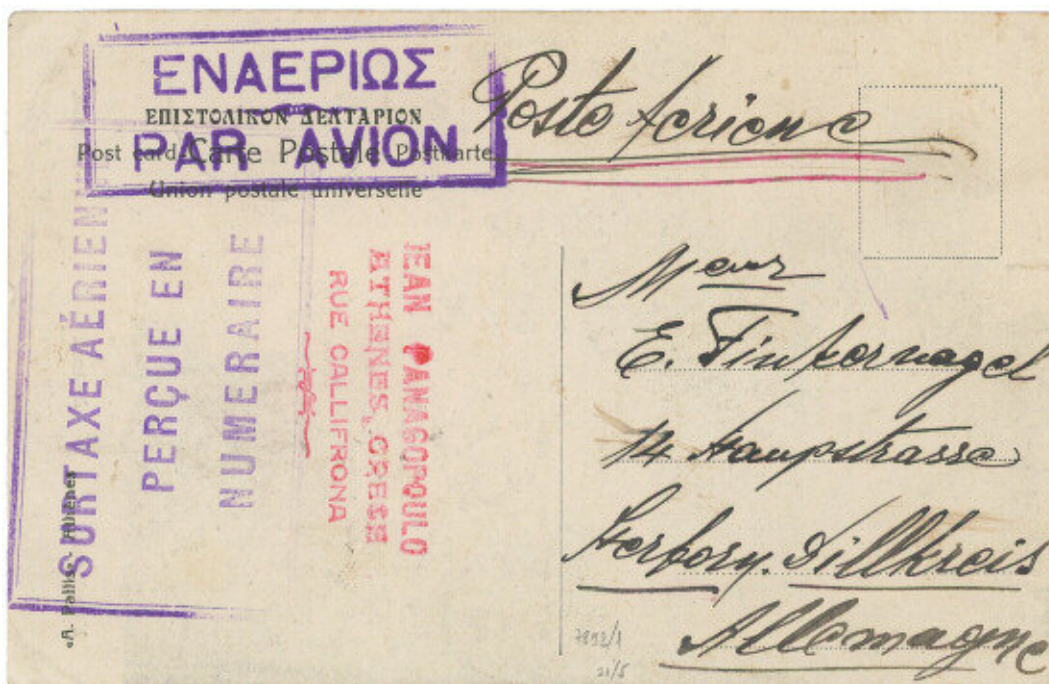 ΕΝΑΕΡΙΩΣ
ΕΠΙΣΤΟΛΙΚΟΝ ΔΕΛΤΑΡΙΟΝ
PAR AVION
Post card Carte Postale Postkarte
Union postale universelle
Poste Aerienne
SURTAXE AÉRIENN
PERÇUE EN
NUMERAIRE
JEAN PANAGOPOULO
ATHENES, GRECE
RUE CALLIFRONA
A. Pallis, Athènes
Meur
E. Finkernagel
14 Haupstrasse
Herborn. Dillkreis
Allemagne
7892/1
21/5